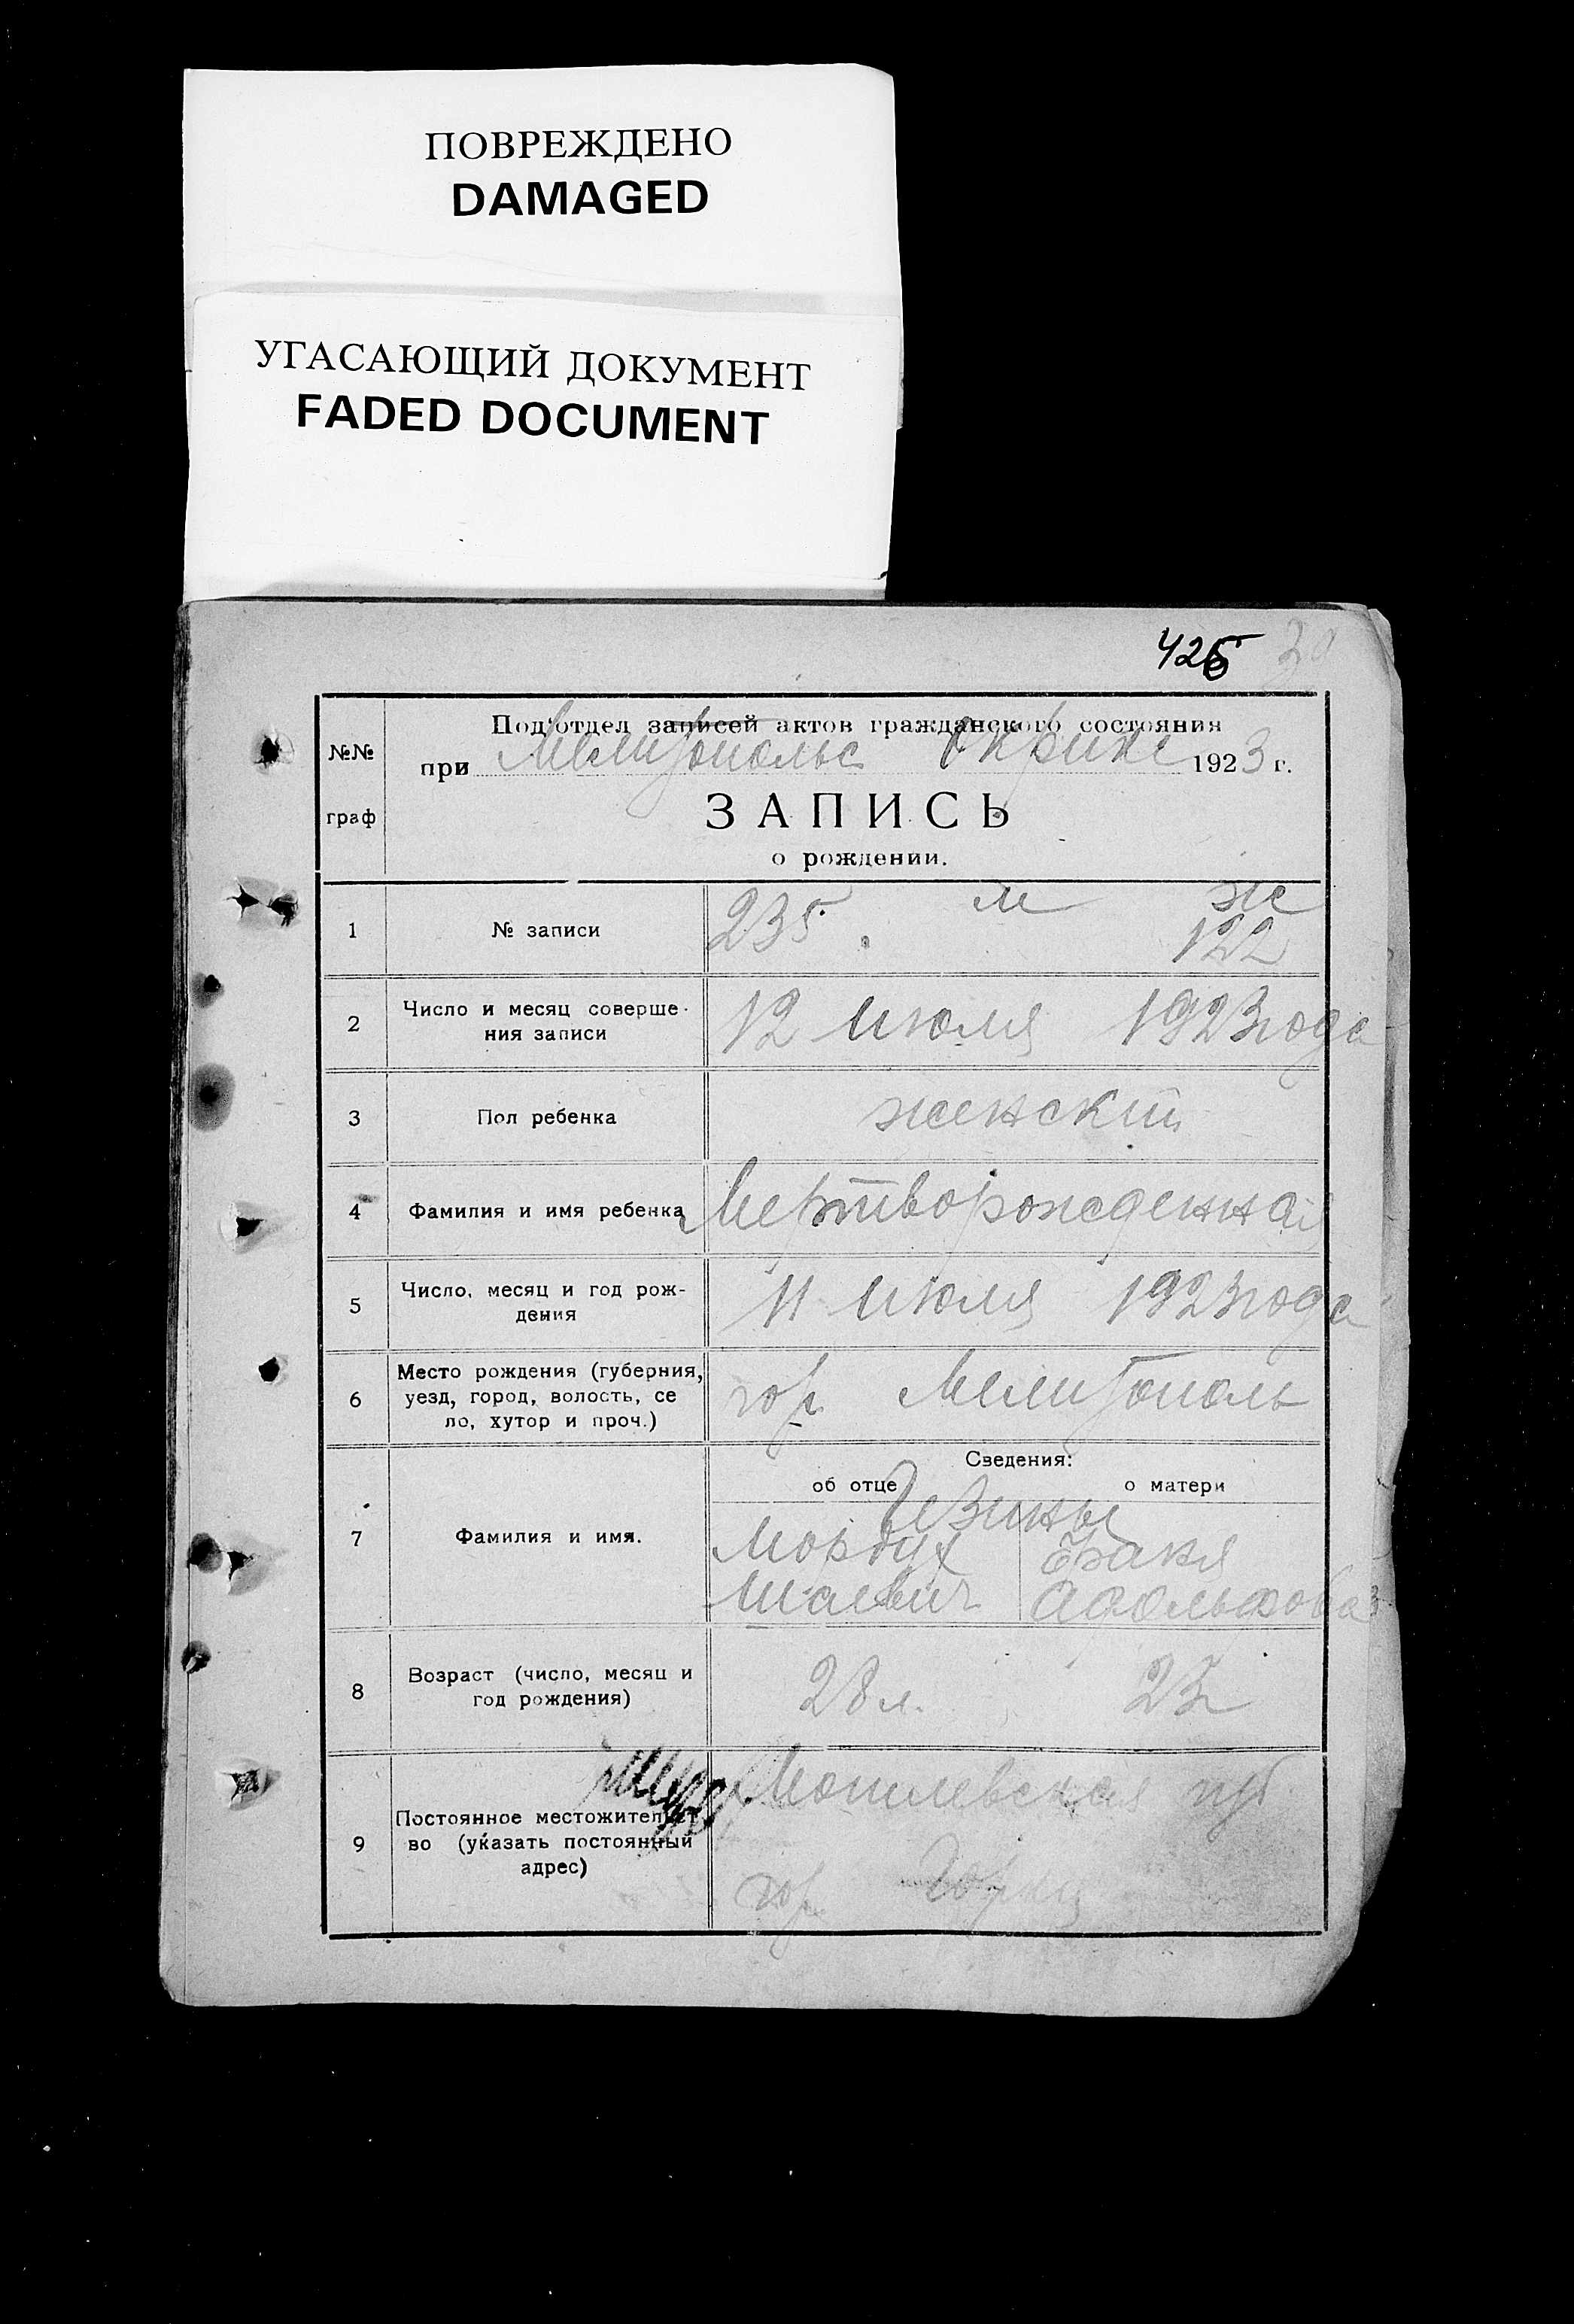 ПОВРЕЖДЕНО
DAMAGED
УГАСАЮЩИЙ ДОКУМЕНТ
FADED DOCUMENT
425 30
№№ граф
Под'отдел записей актов гражданского состояния
при Мелитопольс Окрике 1923 г.
ЗАПИСЬ
о рождении.
1 № записи 235. м ж
122
2 Число и месяц соверше-
ния записи 12 июля 1923 года
3 Пол ребенка женский
4 Фамилия и имя ребенка Мертворожденная
5 Число, месяц и год рож-
дения 11 июля 1923 года
6 Место рождения (губерния,
уезд, город, волость, се
ло, хутор и проч.) гор Мелитополь
Сведения:
об отце о матери
7 Фамилия и имя.
Мордух
Шаевич Адольфовна
8 Возраст (число, месяц и
год рождения) 28 л. 23
9 Постоянное местожительст
во (указать постоянный
адрес) Могилевская губ
гор Горки